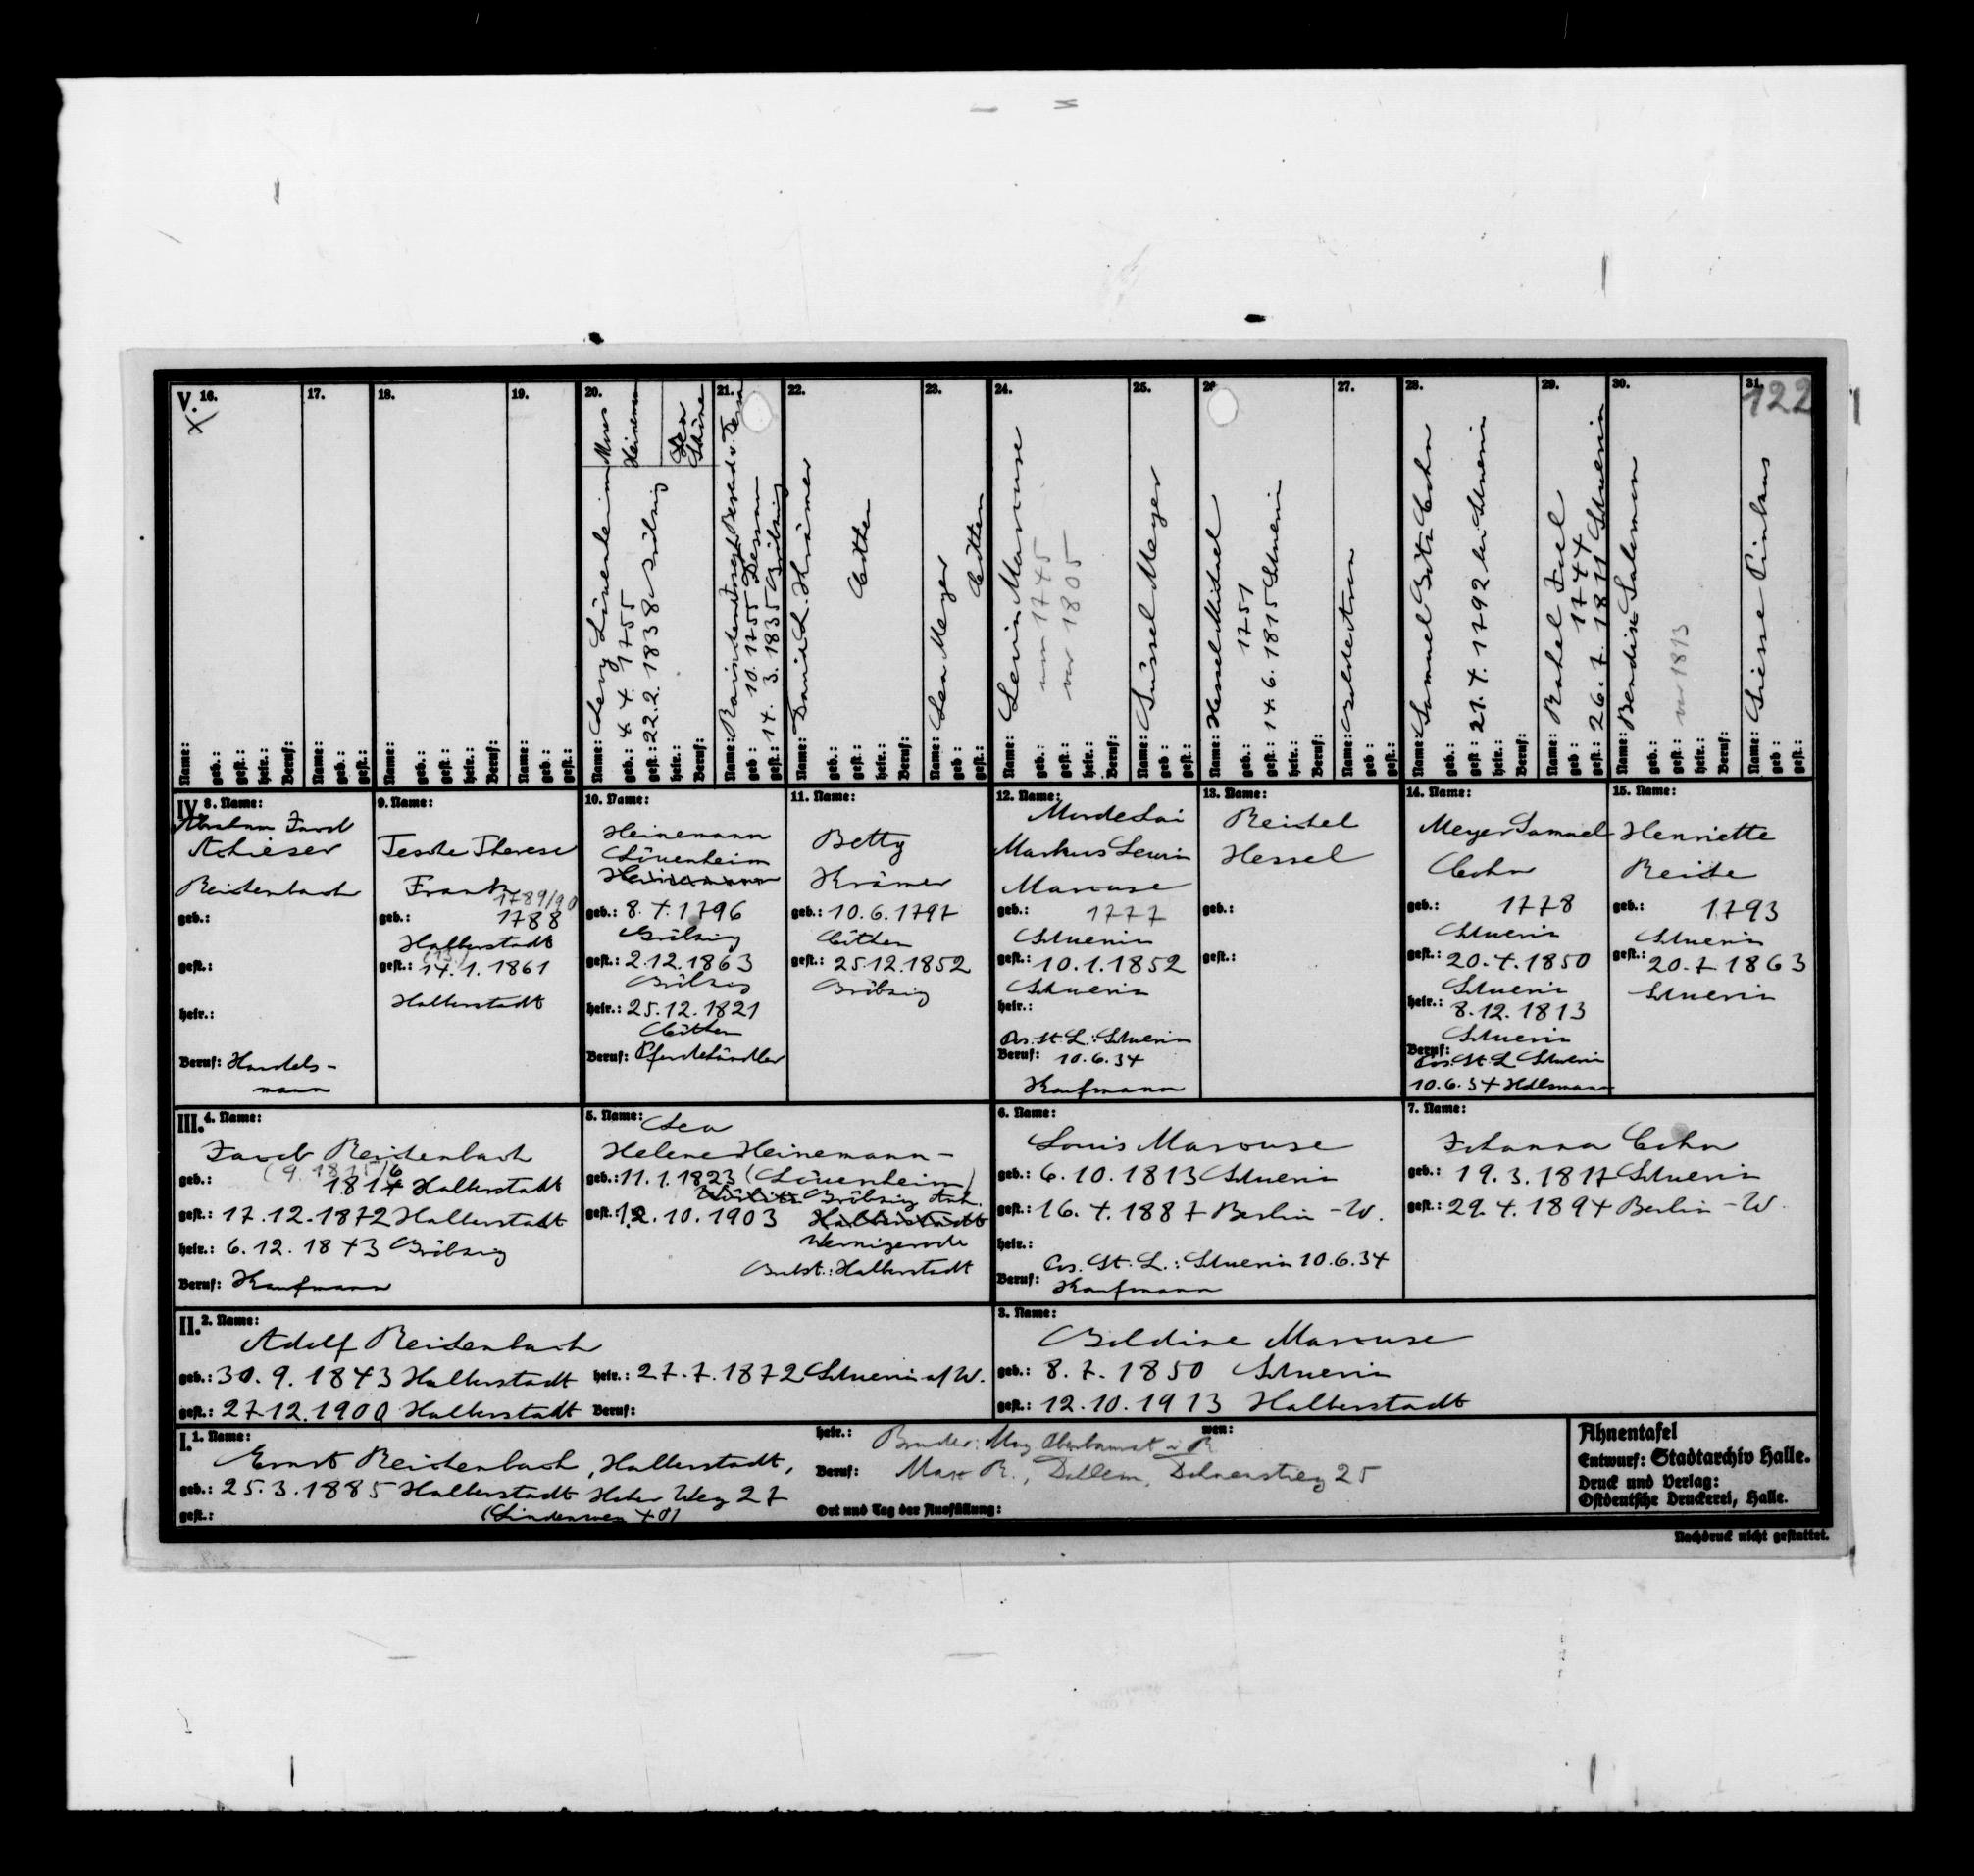 122
V. 16.
Name:
geb.:
gest.:
heir.:
Beruf:
17.
Name:
geb.:
gest.:
18.
Name:
geb.:
gest.:
heir.:
Beruf:
19.
Name:
geb.:
gest.:
20.
Moses
Heinemann
Lea
Name: Levy Löwenheim
geb.: 4.4.1755
gest.: 22.2.1838 Gröbzig
heir.:
Beruf:
21.
Name:
geb: 10. 1755 Dessau
gest.: 14. 3. 1835 Gröbzig
22.
Name: David L. Krämer
Cöthen
geb.:
gest.:
heir.:
Beruf:
23.
Name: Lea Meyer
Cöthen
geb
gest.:
24.
Name: Lewin Marcuse
geb.: um 1745
gest.: vor 1805
heir.:
Beruf:
25.
Name: Süssel Meyer
geb:
gest.:
26
Name: Hessel Michael
geb.: 1751
gest.: 14.6.1815 Schwerin
heir.:
Beruf:
27.
Name:
geb:
gest.:
28.
Name: Samuel Cohn
geb.:
gest: 21.4.1792 Schwerin
heir.:
Beruf:
29.
Name: Rahel Joel
geb: 1744
gest.: 26.7.1811 Schwerin
30.
Name: Bendix Salomon
geb.:
gest.: vor 1813
heir.:
Beruf:
31.
Name: Giesse Pinkus
geb:
gest.:
IV. 8. Name:
Abraham Jacob
Achieser
Reichenbach
geb.:
gest.:
heir.:
Beruf: Handels-
mann
9. Name:
Tesche Therese
Frank
1789/90
geb.: 1788
Halberstadt
(13.)
gest.: 14.1.1861
Halberstadt
10. Name:
Heinemann
Löwenheim
Heinemann
geb.: 8.4.1796
Gröbzig
gest.: 2.12.1863
Gröbzig
heir.: 25.12.1821
Cöthen
Beruf: Pferdehändler
11. Name:
Betty
Krämer
geb.: 10.6.1797
Cöthen
gest.: 25.12.1852
Gröbzig
12. Name:
Mordechai
Markus Lewin
Marcuse
geb.: 1777
Schwerin
gest.: 10.1.1852
Schwerin
heir.:
Ges. St. L.: Schwerin
Beruf: 10.6.34
Kaufmann
13. Name:
Reichel
Hessel
geb.:
gest.:
14. Name:
Meyer Samuel
Cohn
geb.: 1778
Schwerin
gest.: 20.4.1850
Schwerin
heir.: 8.12.1813
Schwerin
Beruf:
Ges. St. L. Schwerin
10.6.34 Hdlsmann
15. Name:
Henriette
Reiche
geb.: 1793
Schwerin
gest.: 20.7.1863
Schwerin
III. 4. Name:
Jacob Reichenbach
(9. 1815/6
geb.: 1814 Halberstadt
gest.: 17.12.1872 Halberstadt
heir.: 6.12.1843 Gröbzig
Beruf: Kaufmann
5. Name: Lea
Helene Heinemann-
geb.: 11.1.1823 (Löwenheim)
Gröbzig Anh.
gest.: 12.10.1903 Halberstadt
Wernigerode
Halberstadt
6. Name:
Louis Marcuse
geb.: 6.10.1813 Schwerin
gest.: 16.4.1887 Berlin-W.
heir.:
Ges. St. L.: Schwerin 10.6.34
Beruf: Kaufmann
7. Name:
Johanna Cohn
geb.: 19.3.1817 Schwerin
gest.: 29.4.1894 Berlin-W.
II. 2. Name:
Adolf Reichenbach
geb.: 30.9.1843 Halberstadt heir.: 27.7.1872 Schwerin a/W.
gest.: 27.12.1900 Halberstadt Beruf:
3. Name:
Goldine Marcuse
geb.: 8.7.1850 Schwerin
gest.: 12.10.1913 Halberstadt
I. 1. Name:
Ernst Reichenbach, Halberstadt,
geb.: 25.3.1885 Halberstadt Hoher Weg 27
gest.: (Lindenweg 40)
heir.: wen:
Bruder:
Beruf: Max R., Dahlem, Dohnenstieg 25
Ort und Tag der Ausfüllung:
Ahnentafel
Entwurf: Stadtarchiv Halle.
Druck und Verlag:
Ostdeutsche Druckerei, Halle.
Nachdruck nicht gestattet.